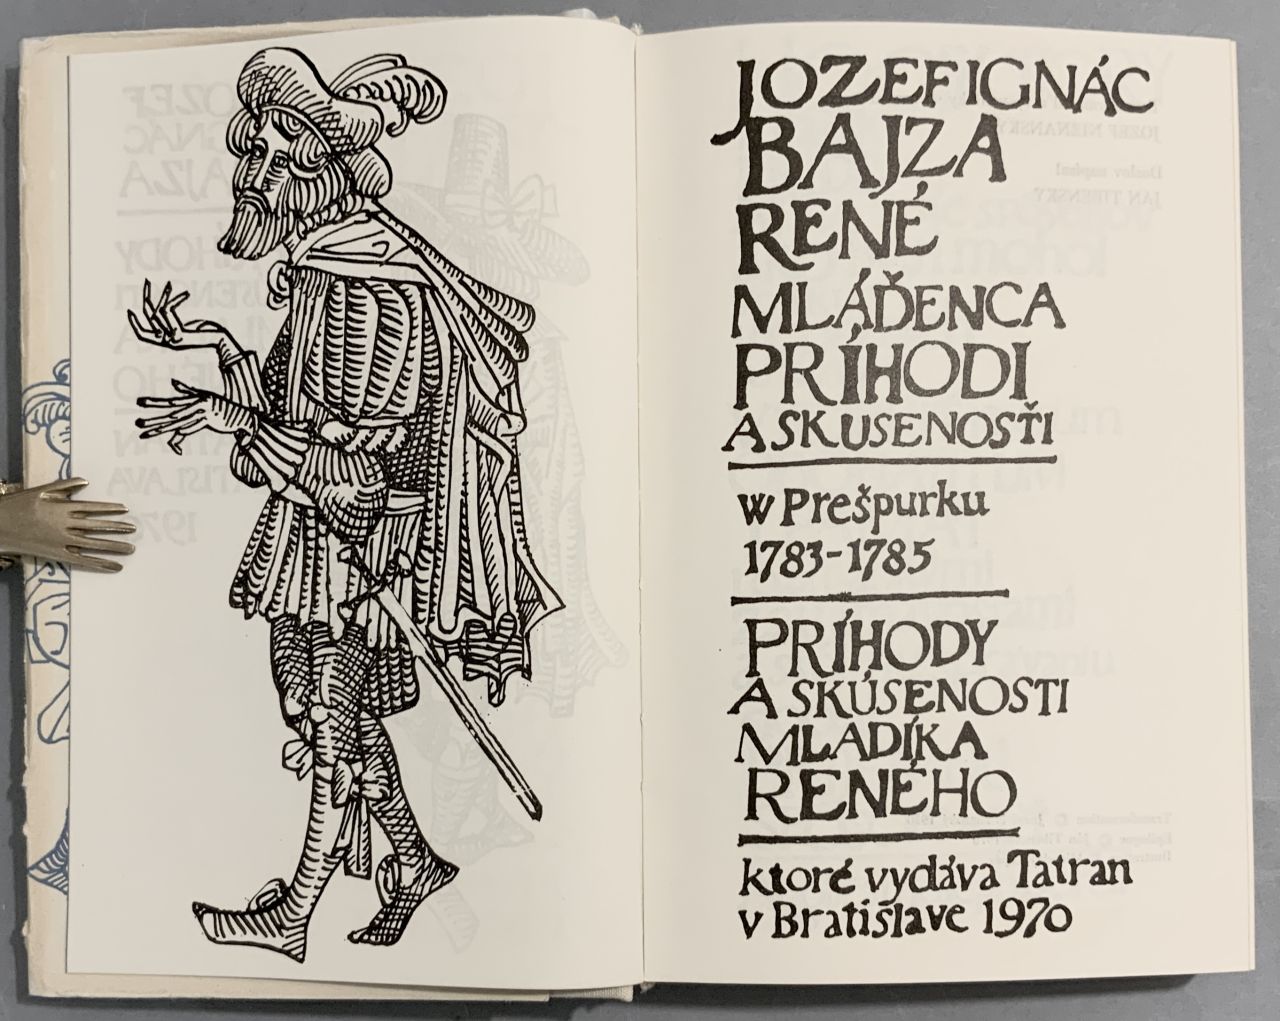 JOZEF IGNÁC
BAJZA
RENÉ
MLÁĎENCA
PRÍHODI
A SKUSENOSŤI
w Prešpurku
1783-1785
PRÍHODY
A SKÚSENOSTI
MLADÍKA
RENÉHO
ktoré vydáva Tatran
v Bratislave 1970